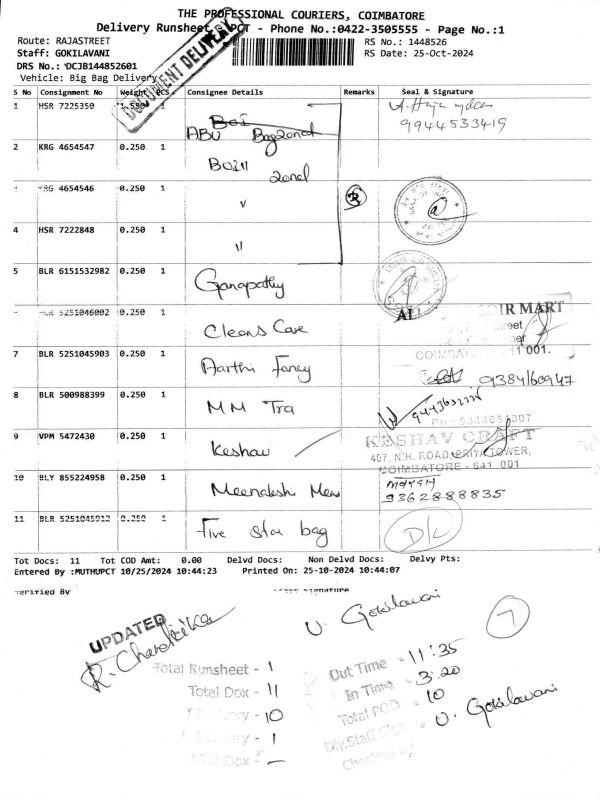 THE PROFESSIONAL COURIERS, COIMBATORE
Delivery Runsheet PCT - Phone No.:0422-3505555 - Page No.:1
Route: RAJASTREET RS No.: 1448526
Staff: GOKILAVANI RS Date: 25-Oct-2024
DRS No.: DCJB144852601
Vehicle: Big Bag Delivery
DOCUMENT DELIVERY
S No Consignment No Weight PCS Consignee Details Remarks Seal & Signature
1 HSR 7225350 ABU Bagzonel
9944533419
2 KRG 4654547 0.250 1 zonel
KRG 4654546 0.250 1 " R
4 HSR 7222848 0.250 1 "
5 BLR 6151532982 0.250 1 Ganapathy
5251046002 0.250 1 Cleans Care COIR MART
COIMBATORE 641 001.
7 BLR 5251045903 0.250 1 Aarthi Fancy 9384160947
8 BLR 500988399 0.250 1 MM Tra
9 VPM 5472430 0.250 1 Keshav KESHAV CRAFT
407, N.H. ROAD, PRIYA TOWER,
COIMBATORE - 641 001
10 BLY 855224958 0.250 1 Meenakshi Men 9362888835
11 BLR 5251045912 0.250 1 Five star bag D/L
Tot Docs: 11 Tot COD Amt: 0.00 Delvd Docs: Non Delvd Docs: Delvy Pts:
Entered By :MUTHUPCT 10/25/2024 10:44:23 Printed On: 25-10-2024 10:44:07
Verified By Signature
UPDATED
U. Gokilavani
7
Total Runsheet - 1
Total Dox - 11
Delivery - 10
Delivery - 1
RTN Dox -
Out Time - 11:35
In Time - 3.20
Total POD - 10
Dly.Staff Sign - U. Gokilavani
Checked by